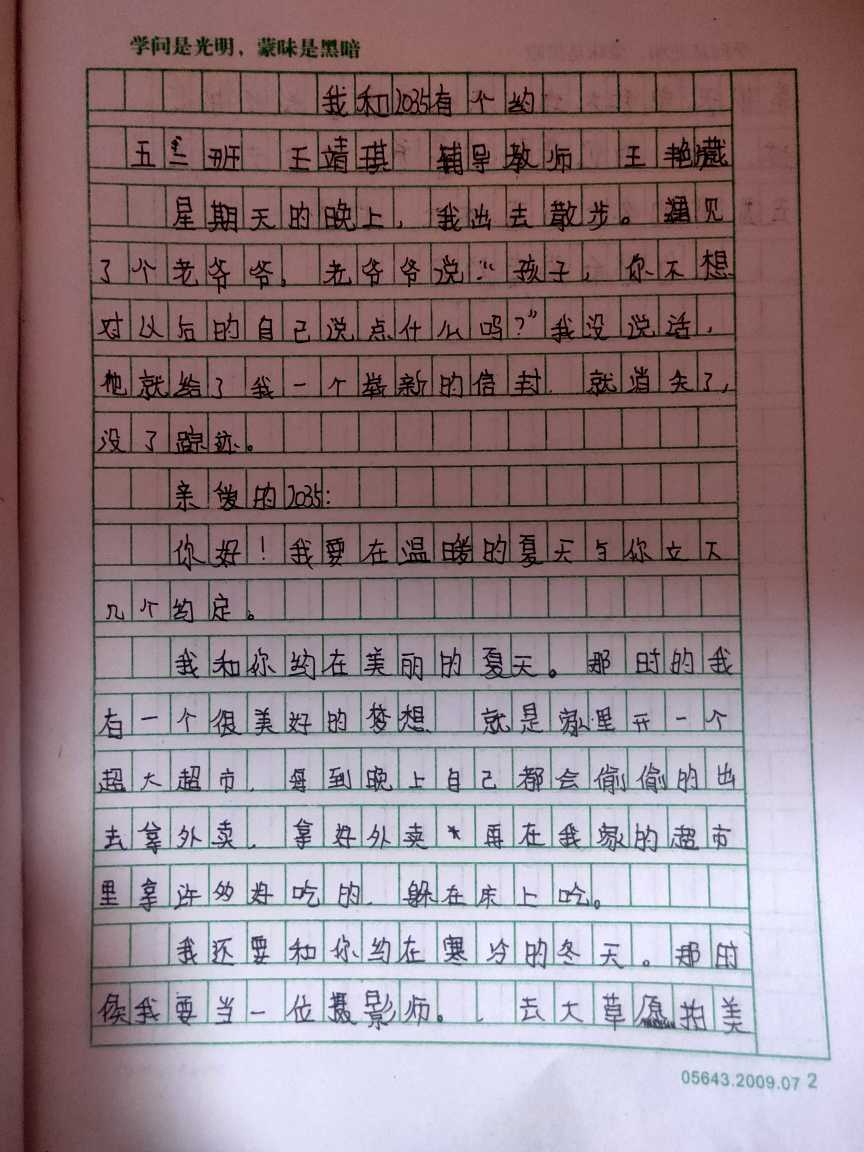 学问是光明，蒙昧是黑暗
我和2035有个约
五 班 王靖琪 辅导教师 王艳
星期天的晚上，我出去散步。遇见
了个老爷爷。老爷爷说：“孩子，你不想
对以后的自己说点什么吗？”我没说话，
他就给了我一个崭新的信封，就消失了，
没了踪迹。
亲爱的2035：
你好！我要在温暖的夏天与你立下
几个约定。
我和你约在美丽的夏天。那时的我
有一个很美好的梦想，就是家里开一个
超大超市，每到晚上自己都会偷偷的出
去拿外卖，拿好外卖 再在我家的超市
里拿许多好吃的，躲在床上吃。
我还要和你约在寒冷的冬天。那时
候我要当一位摄影师。，去大草原拍美
05643.2009.07 2